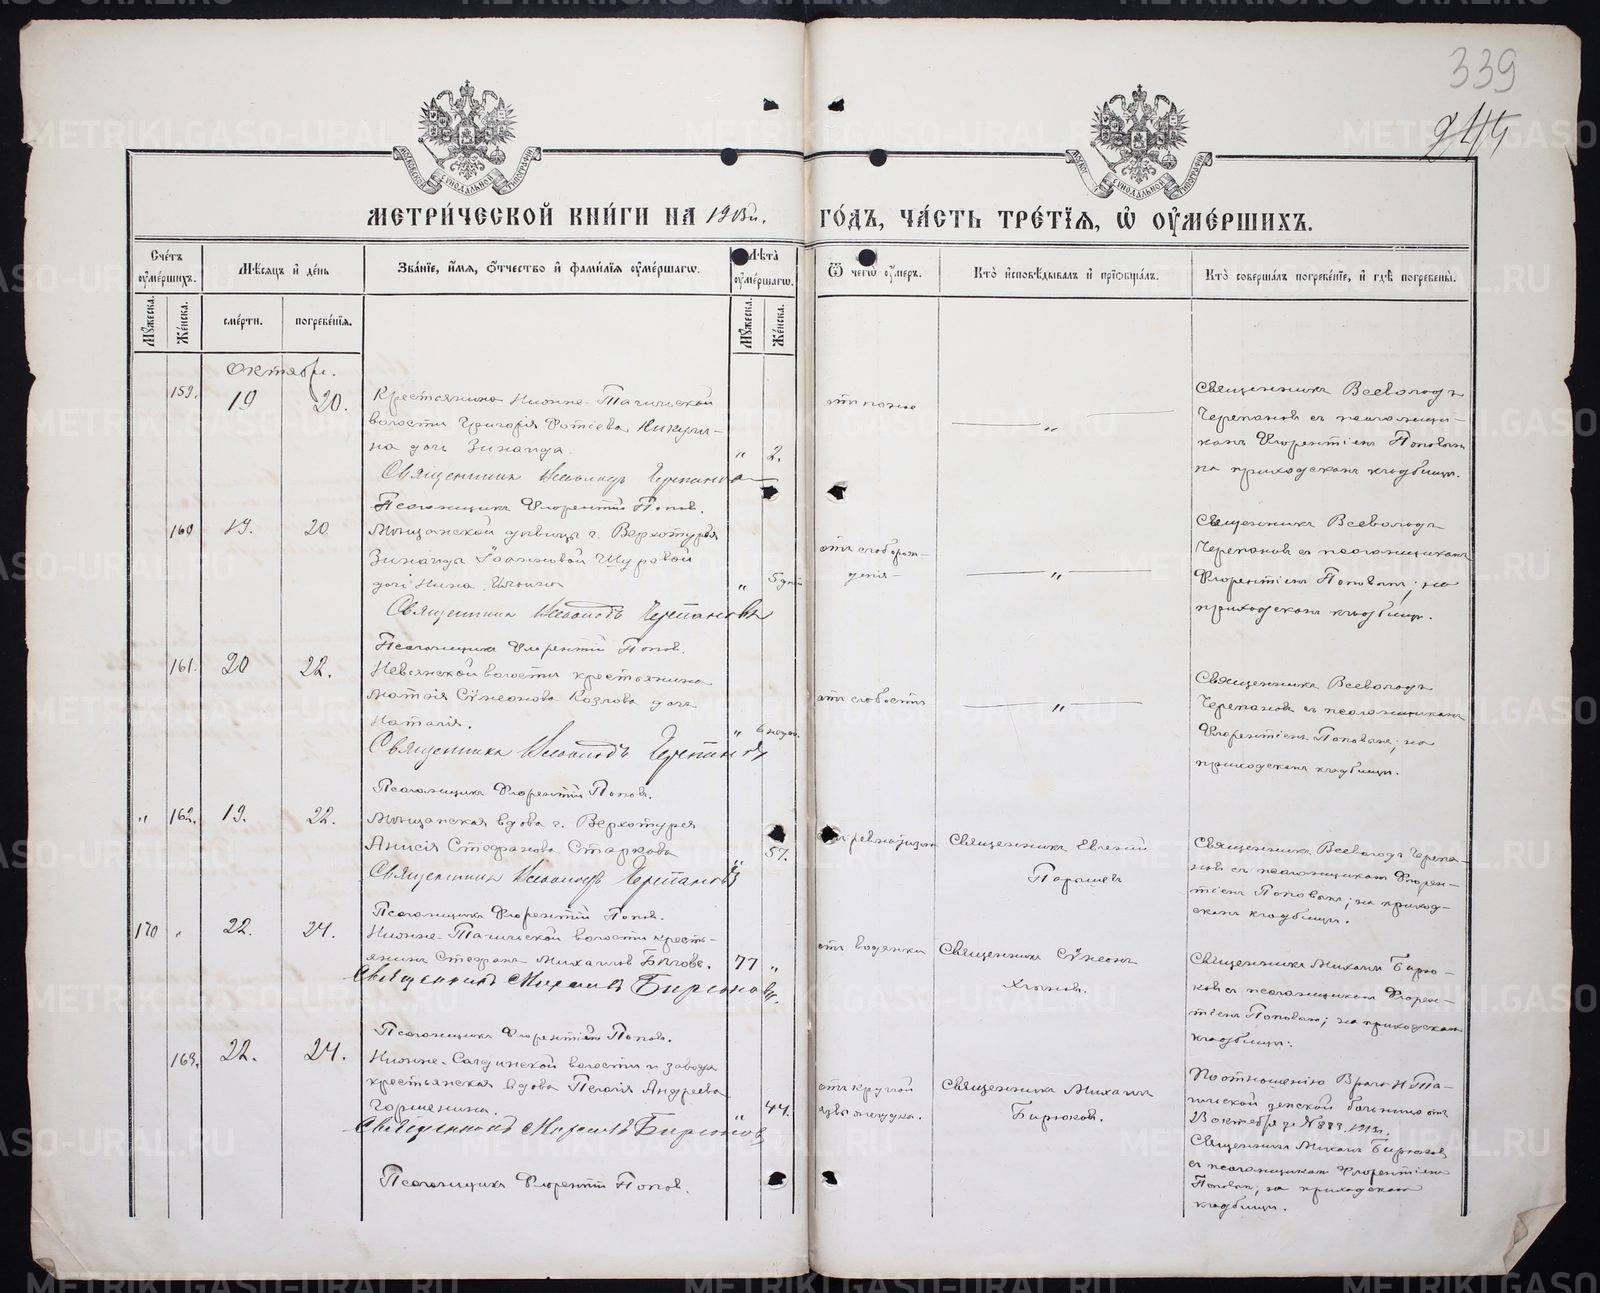 339
244
МЕТРИ́ЧЕСКОЙ КНИ́ГИ НА 1913й. ГО́ДЪ, ЧА́СТЬ ТРЕ́ТІЯ, Ѡ ОУ҆МЕ́РШИХЪ.
Сче́тъ оу҆ме́ршихъ.
Мѣ́сяцъ и҆ де́нь
Зва́нїе, и҆́мя, ѻ҆́тчество и҆ фами́лїя оу҆ме́ршагѡ.
Лѣта̀ оу҆ме́ршагѡ.
Ѿ чегѡ̀ оу҆́меръ.
Кто̀ и҆сповѣ́дывалъ и҆ прїѡбща́лъ.
Кто̀ соверша́лъ погребе́нїе, и҆ гдѣ̀ погребены̀.
Мꙋ́жеска.
Же́нска.
сме́рти.
погребе́нїя.
Мꙋ́жеска.
Же́нска.
Октябрь.
159. 19 20.
Крестьянина Нижне-Тагильской
волости Григорія Фотіева Никули-
на дочь Зинаида. " 2.
Священникъ Всеволодъ Черепановъ
Псаломщикъ Флорентій Попов.
отъ поноса
"
Священникъ Всеволодъ
Черепановъ съ псаломщи-
комъ Флорентіемъ Поповымъ
на приходскомъ кладбищѣ.
160 19. 20
Мѣщанской дѣвицы г. Верхотурья
Зинаиды Іоанновой Щуровой
дочь Нина " 5 дней
Священникъ Всеволодъ Черепановъ
Псаломщикъ Флорентій Попов.
отъ слаборож-
денія
"
Священникъ Всеволодъ
Черепановъ съ псаломщикомъ
Флорентіемъ Поповымъ; на
приходскомъ кладбищѣ.
161. 20 22.
Невьянской волости крестьянина
Матѳія Сѵмеонова Козлова дочь
Наталія. " 6 недѣл.
Священникъ Всеволодъ Черепановъ
Псаломщикъ Флорентій Попов.
отъ слабости
"
Священникъ Всеволодъ
Черепановъ съ псаломщикомъ
Флорентіемъ Поповымъ; на
приходскомъ кладбищѣ.
" 162. 19. 22.
Мѣщанская вдова г. Верхотурья
Анисія Стефанова Старкова " 57.
Священникъ Всеволодъ Черепановъ
Псаломщикъ Флорентій Попов.
отъ ревматизма
Священникъ Евгеній
Священникъ Всеволодъ Черепа-
новъ съ псаломщикомъ Флорен-
тіемъ Поповымъ; на приход-
скомъ кладбищѣ.
170 " 22. 24.
Нижне-Тагильской волости кресть-
янинъ Стефанъ Михаиловъ 77 "
Священникъ Михаилъ Бирюковъ
Псаломщикъ Флорентій Попов.
отъ водянки
Священникъ Сѵмеонъ
Хлыновъ.
Священникъ Михаилъ Бирю-
ковъ съ псаломщикомъ Флорен-
тіемъ Поповымъ; на приходскомъ
кладбищѣ.
163. 22. 24.
Нижне-Салдинской волости и завода
крестьянская вдова Пелагія Андреева
Горшенина. " 44.
Священникъ Михаилъ Бирюков
Псаломщикъ Флорентій Попов.
отъ круглой
язвы желудка.
Священникъ Михаилъ
Бирюков.
По отношенію Врача Н-Та-
гильской земской больницы отъ
октября за № 883. 1913г.
Священникъ Михаилъ Бирюковъ
съ псаломщикомъ Флорентіемъ
Поповым; на приходском
кладбищѣ.
METRIKI.GASO-URAL.RU